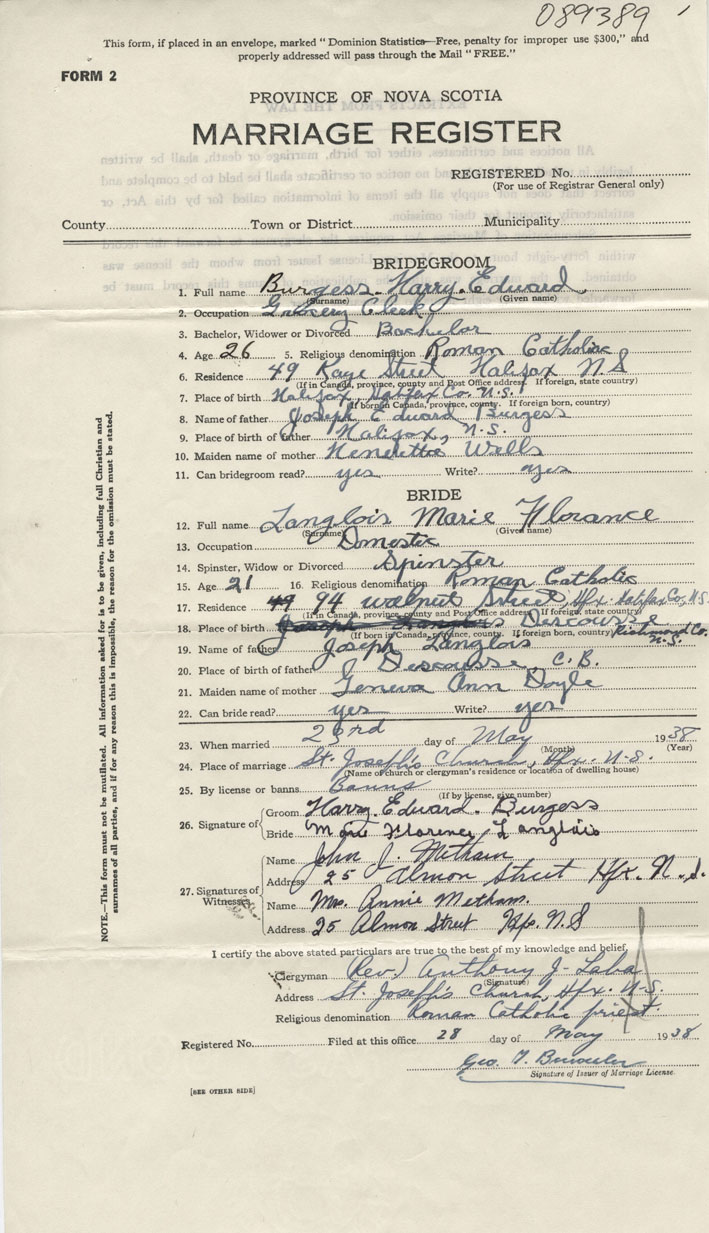 089389
This form, if placed in an envelope, marked "Dominion Statistics—Free, penalty for improper use $300," and
properly addressed will pass through the Mail "FREE."
FORM 2
PROVINCE OF NOVA SCOTIA
MARRIAGE REGISTER
REGISTERED No.
(For use of Registrar General only)
County Town or District Municipality
BRIDEGROOM
1. Full name Burgess Harry Edward
(Surname) (Given name)
2. Occupation Grocery Clerk
3. Bachelor, Widower or Divorced Bachelor
4. Age 26 5. Religious denomination Roman Catholic
6. Residence 49 Kaye Street Halifax N S
(If in Canada, province, county and Post Office address. If foreign, state country)
7. Place of birth Halifax, Halifax Co. N.S.
(If born in Canada, province, county. If foreign born, country)
8. Name of father Joseph Edward Burgess
9. Place of birth of father Halifax, N.S.
10. Maiden name of mother Henrietta Wells
11. Can bridegroom read? yes Write? yes
BRIDE
12. Full name Langlois Marie Florance
(Surname) (Given name)
13. Occupation Domestic
14. Spinster, Widow or Divorced Spinster
15. Age 21 16. Religious denomination Roman Catholic
17. Residence 49 94 walnut Street, Hfx. Halifax Co, N.S.
(If in Canada, province, county and Post Office address. If foreign, state country)
18. Place of birth Joseph Langlois Descousse
(If born in Canada, province, county. If foreign born, country) Richmond Co. N.S.
19. Name of father Joseph Langlois
20. Place of birth of father Descousse, C.B.
21. Maiden name of mother Geneva Ann Doyle
22. Can bride read? yes Write? yes
23. When married 23rd day of May 1938
(Month) (Year)
24. Place of marriage St. Joseph's Church, Hfx. N.S.
(Name of church or clergyman's residence or location of dwelling house)
25. By license or banns Banns
(If by license, give number)
26. Signature of Groom Harry Edward Burgess
Bride Marie Florence Langlois
27. Signatures of Witnesses Name John J. Metham
Address 25 Almon Street Hfx. N.S.
Name Mrs. Annie Metham.
Address 25 Almon Street Hfx. N.S
I certify the above stated particulars are true to the best of my knowledge and belief,
Clergyman (Rev.) Anthony J.
(Signature)
Address St. Joseph's Church, Hfx. N.S.
Religious denomination Roman Catholic priest.
Registered No. Filed at this office 28 day of May 1938
Geo.
Signature of Issuer of Marriage License.
[SEE OTHER SIDE]
NOTE.—This form must not be mutilated. All information asked for is to be given, including full Christian and
surnames of all parties, and if for any reason this is impossible, the reason for the omission must be stated.